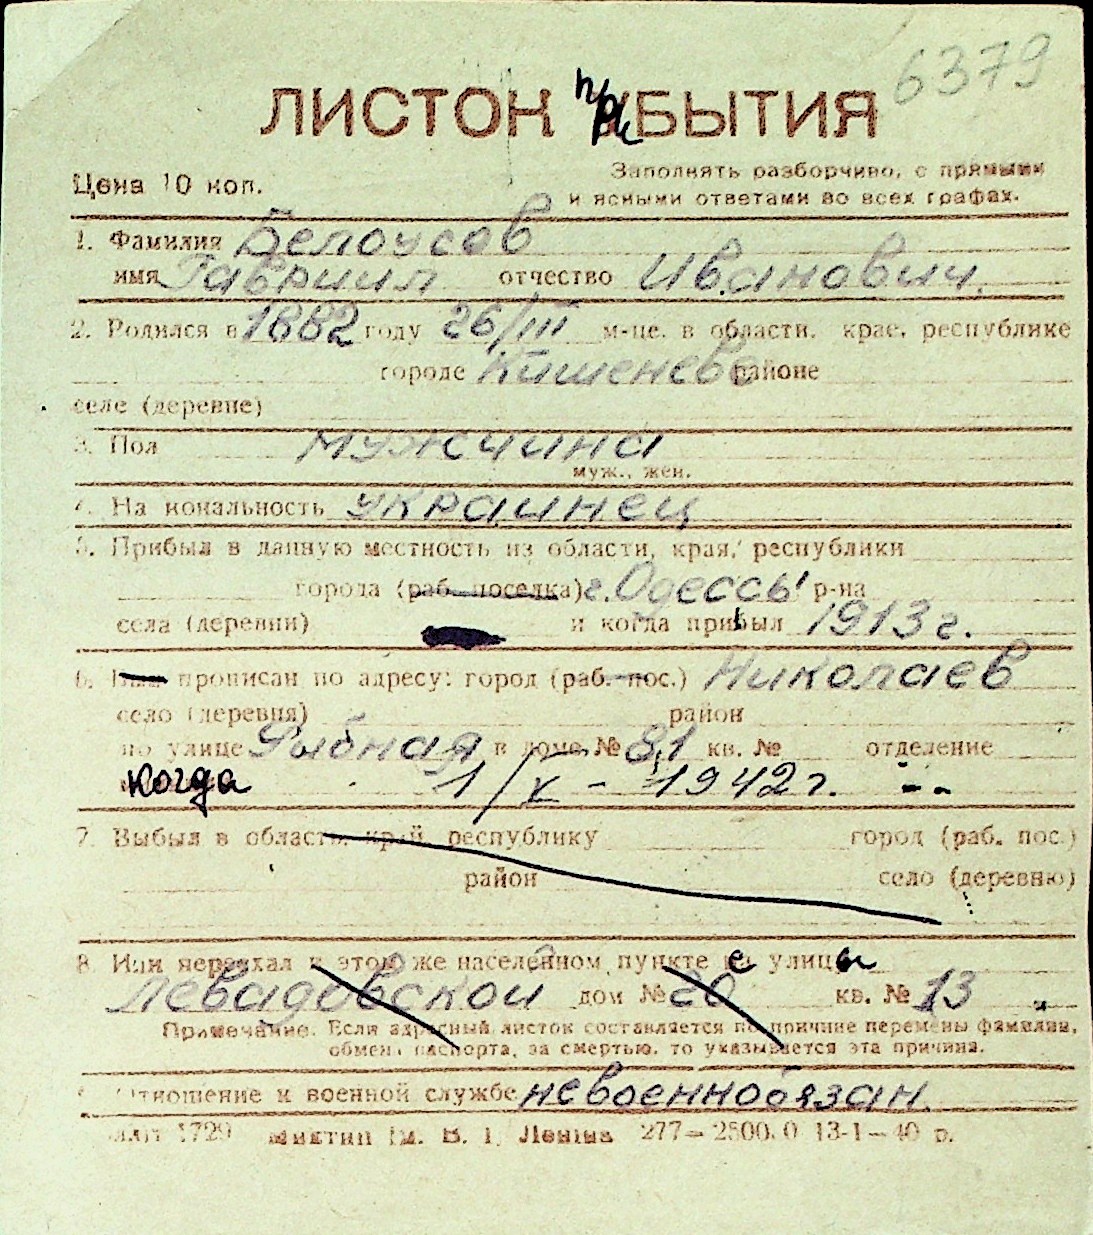 6379
ЛИСТОК прИБЫТИЯ
Цена 10 коп.
Заполнять разборчиво, с прямыми
и ясными ответами во всех графах.
1. Фамилия Белоусов
имя Гавриил отчество Иванович.
2. Родился в 1882 году 26/III м-це. в области, крае, республике
городе Кишеневе районе
селе (деревне)
3. Пол мужчина
муж., жен.
4. На иональность украинец
5. Прибыл в данную местность из области, края, республики
города (раб. поселка) г. Одессы р-на
села (деревни) и когда прибыл 1913 г.
6. Был прописан по адресу: город (раб. пос.) Николаев
село (деревня) район
по улице Рыбная в доме № 81 кв. № отделение
когда 1/X - 1942 г.
7. Выбыл в область, край, республику город (раб. пос.)
район село (деревню)
8. Или переехал в этом же населённом пункте с улицы
Левадовской дом № 20 кв. № 13
Примечание. Если адресный листок составляется по причине перемены фамилии,
обмена паспорта, за смертью, то указывается эта причина.
Отношение к военной службе невоеннообязан.
1729 им. В. І. Леніна 277—2500.0 13-1—40 р.